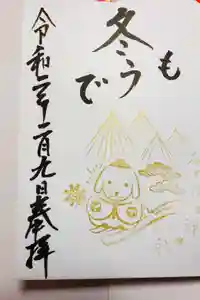 冬もうで
令和 年 月九日奉拝